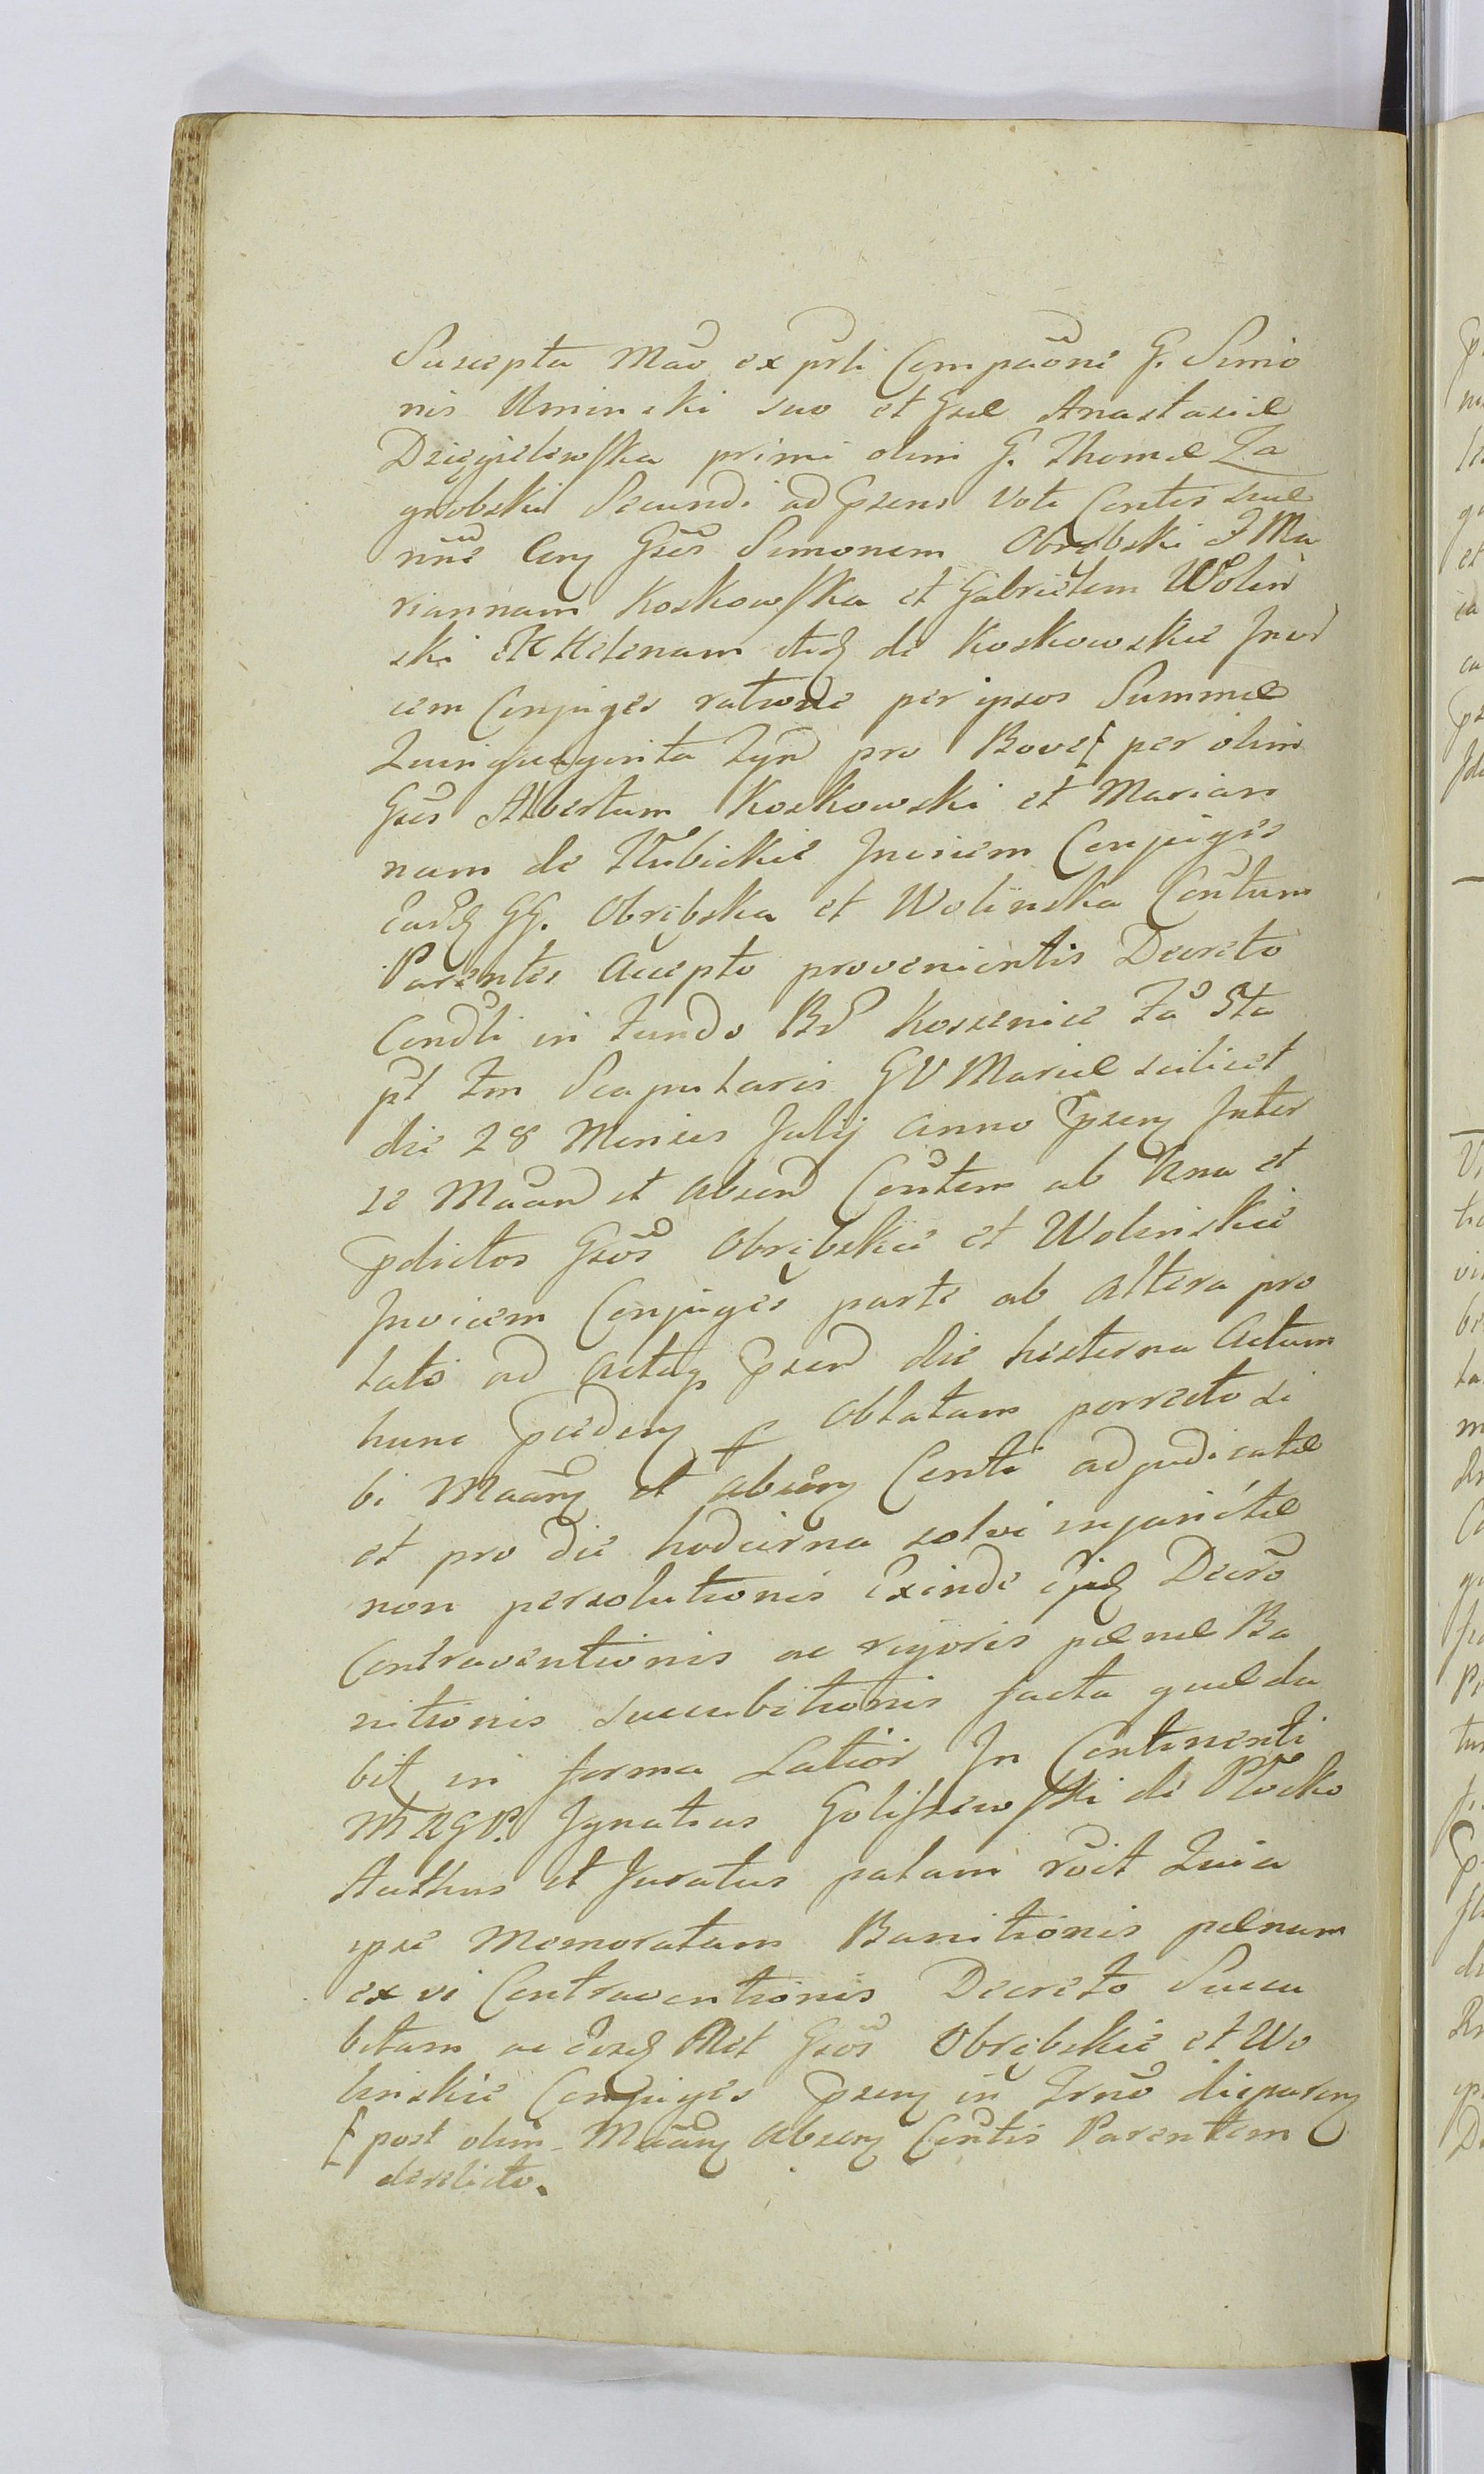 Suscepta Mão ex prti Compaõne G. Simo
nis Uminski suo et Gsæ Anastasiæ
Dzięgielewska primi olim G. Thomæ Za
grobski Secundi ad Psens Voti Contis suæ
nõe Cvy Gsos Simonem Obrębski Ma
riannam Koskowska et Gabrielem Wolin
ski Helenam de Koskowskie Invi
cem Conjuges ratione per ipsos Summæ
Quinquaginta Tyn pro Bove[ per olim
Gsos Albertum Koskowski et Marian
nam de Kłubickie Invicem Conjuges
earỹ GG. Obrębska et Wolinska Coñtum
Parentes Accepto provenientis Decreto
Condli in Fundo Bõ Koszenice Fã Sta
pt Fm Scapularis GV Mariæ scilicet
die 28 Menses Julij Anno Pseny Inter
se Maan et Absen Contem ab Una et
Pdictos Gsos Obrębskie et Wolinskie
Invicem Conjuges parte ab Altera pro
lato ad Acta Psen die hesterna Actum
hunc Pcedeny p Oblatam porrecto si
bi Maañy et Abseny Conti adjudicatæ
et pro die hodierna solvi injunctæ
non persolutionis Exinde Decro
Contraventionis ac rigoris pænæ Ba
nitionis succubitionis facta quæ da
bit in forma Latior In Continenti
MRGP. Ignatius Goliszewski de Płocko
Authus et Juratus palam rõit Quia
ipse Memoratam Banitionis pænam
ex vi Contraventionis Decreto Succu
bitam ac Met Gsos Obrębskie et Wo
linskie Conjuges Pseny in Trno dispareny
[ post olim Maañy Abseny Coñtis Parentem
derelicto.